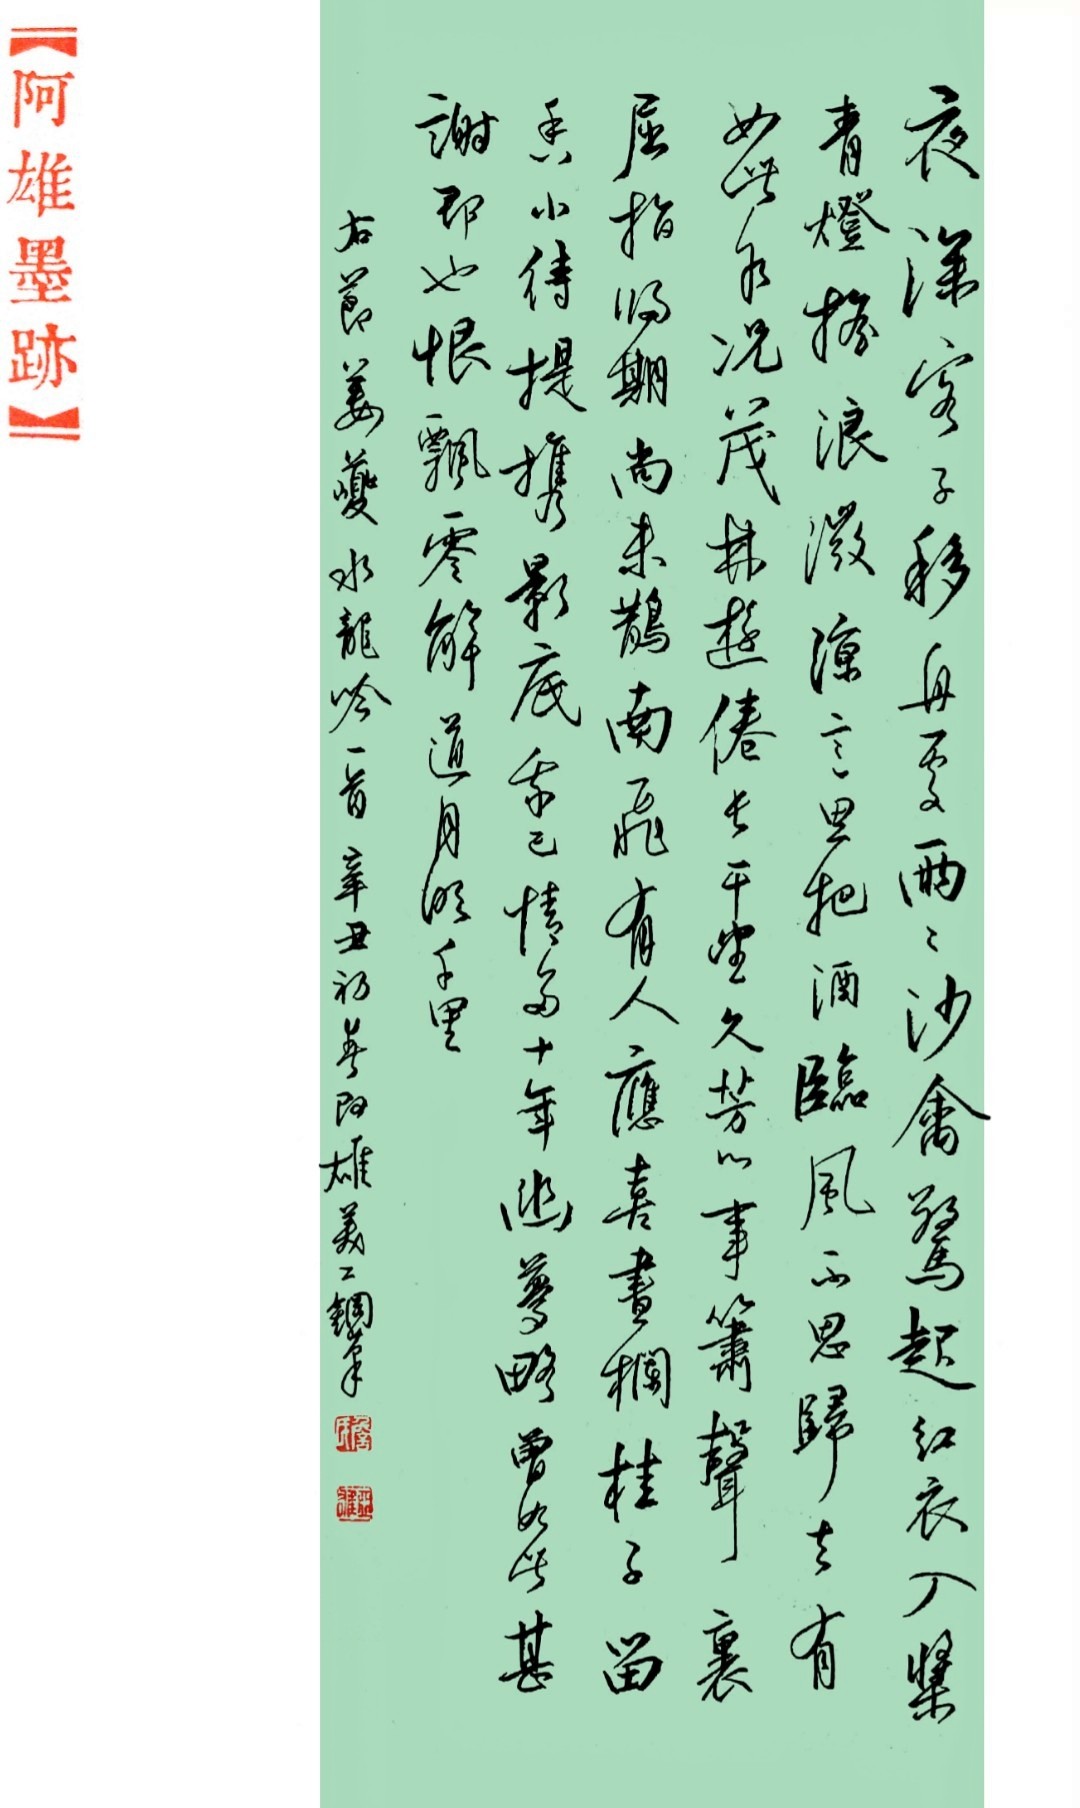 【阿雄墨跡】
夜深客子移舟處兩〻沙禽驚起紅衣入槳
青燈搖浪微涼意思把酒臨風不思歸去有
如此水況茂林遊倦長干望久芳心事簫聲裏
屈指歸期尚未鵲南飛有人應喜畫欄桂子留
香小待提攜影底我已情多十年幽夢略曾如此甚
謝郎也恨飄零解道月明千里
右節姜夔水龍吟一首辛丑初春阿雄美工鋼筆